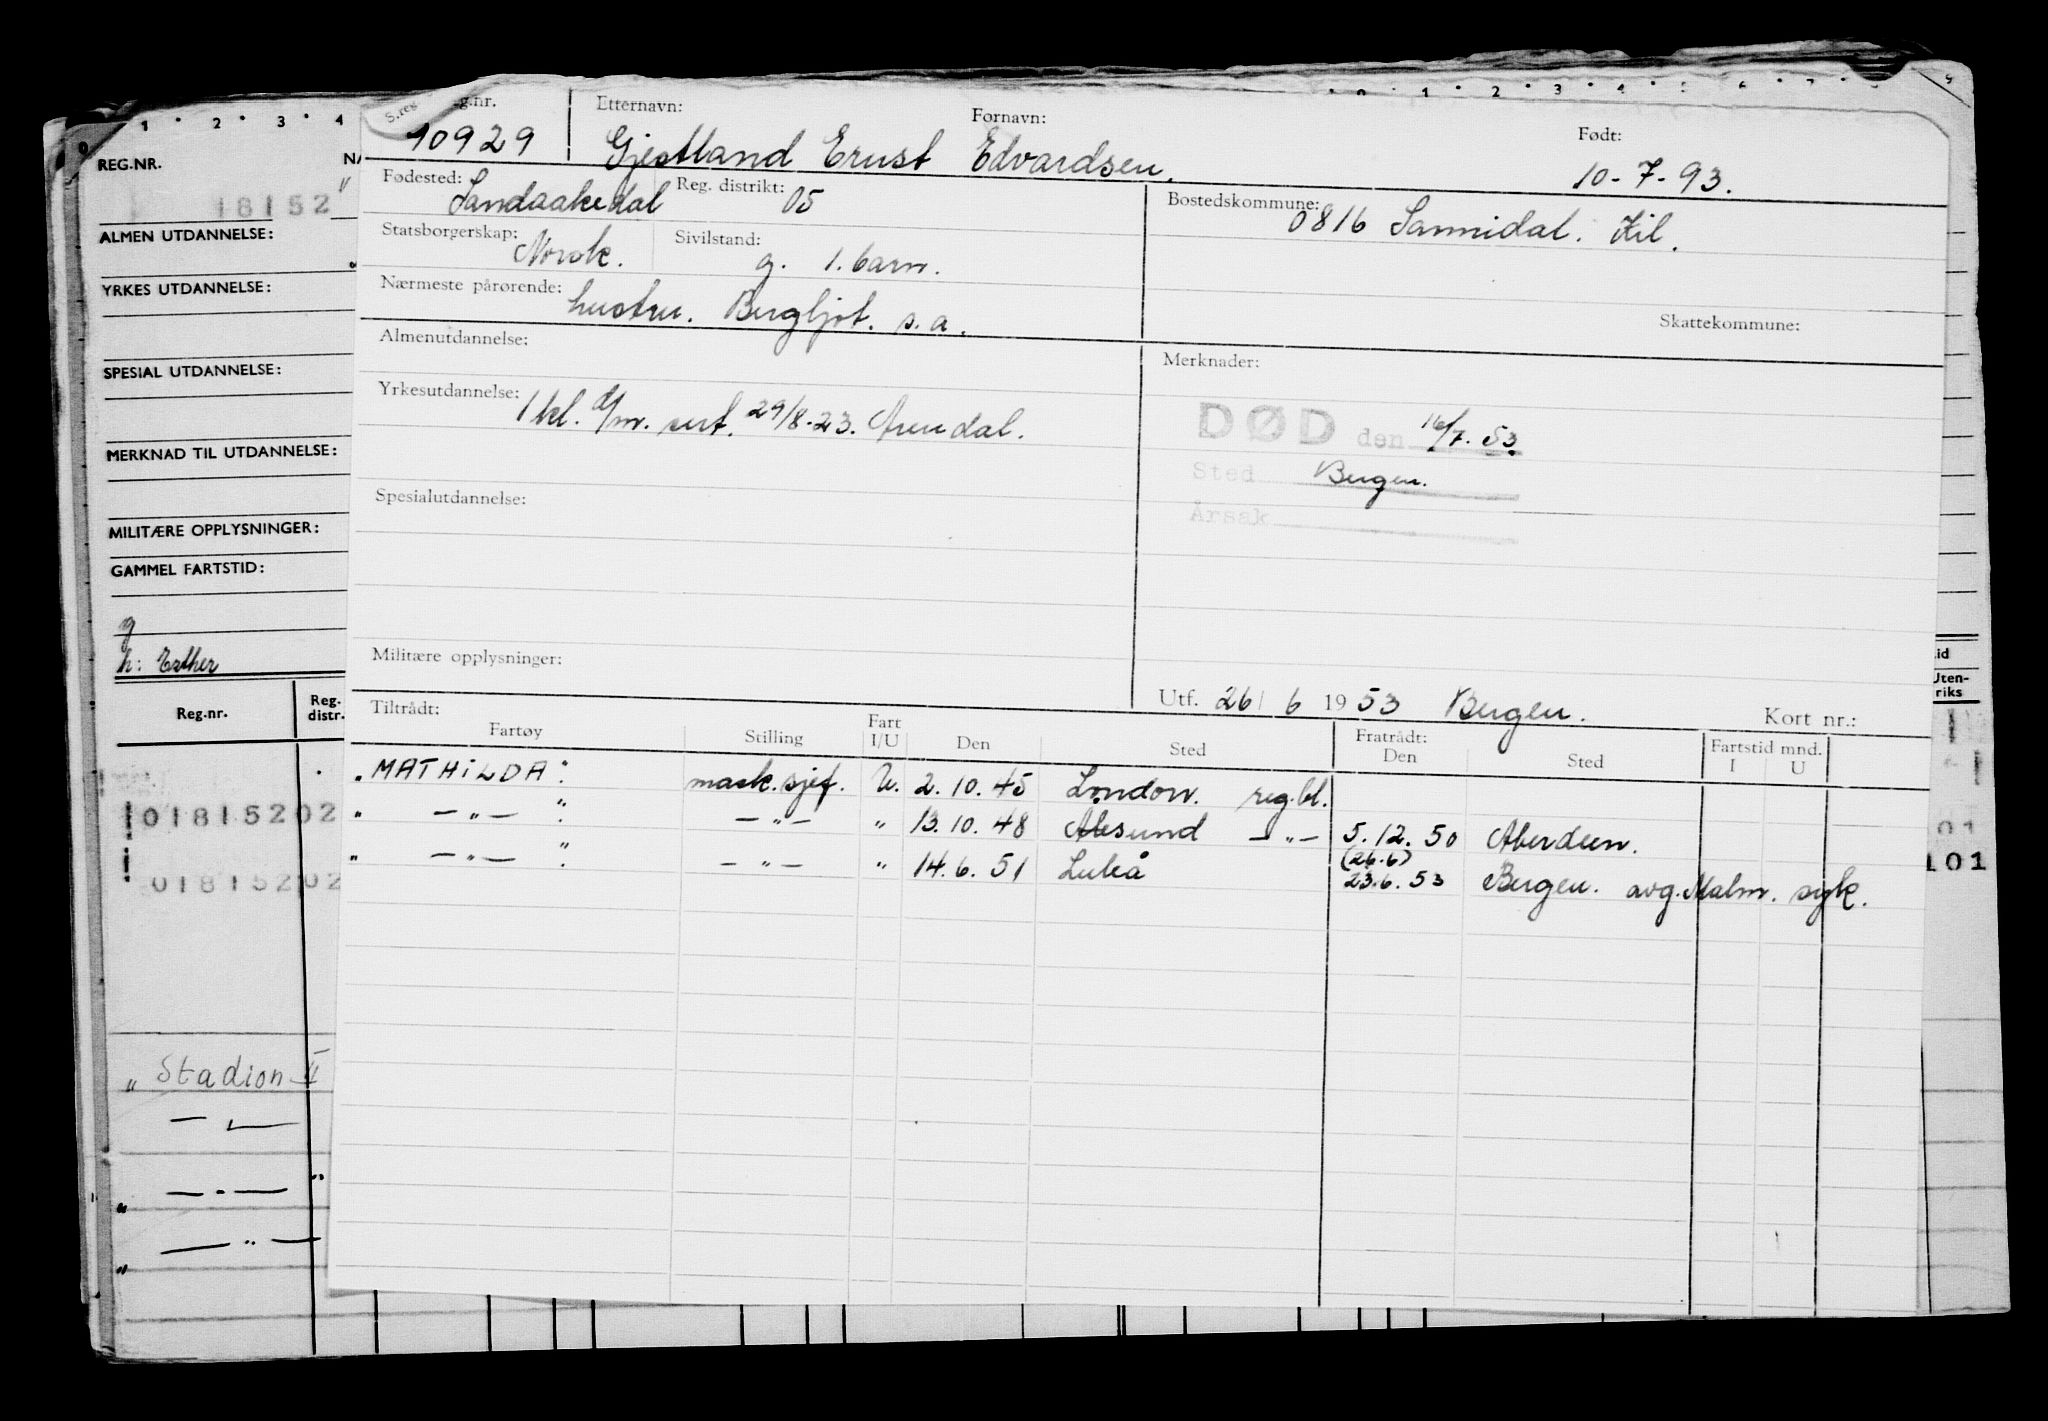 1 · 2 · 3 · 4
0 · 1 · 2 · 3 · 4 · 5 · 6 · 7 · 8 · 9
REG.NR. NA
18152
ALMEN UTDANNELSE:
YRKES UTDANNELSE:
SPESIAL UTDANNELSE:
MERKNAD TIL UTDANNELSE:
MILITÆRE OPPLYSNINGER:
GAMMEL FARTSTID:
g
h: Esther
Reg.nr. Reg. distr.
01815202
01815202
" Stadion II
— " —
" — " — "
" — " —
S.reg
g.nr. Etternavn: Fornavn: Født:
10929 Gjestland Ernst Edvardsen. 10-7-93.
Fødested: Sandaakedal Reg. distrikt: 05 Bostedskommune: 0816 Sannidal. Kil.
Statsborgerskap: Norsk. Sivilstand: g. 1. barn.
Nærmeste pårørende: hustru. Bergljot. s.a.
Skattekommune:
Almenutdannelse: Merknader:
Yrkesutdannelse: 1 kl. d/m. sert. 29/8-23. Arendal.
DØD den 16/7. 53
Sted Bergen.
Årsak
Spesialutdannelse:
Militære opplysninger:
Utf. 26/6 1953 Bergen. Kort nr.:
Tiltrådt: Fratrådt: Fartstid mnd.
Fartøy Stilling Fart I/U Den Sted Den Sted I U
" MATHILDA ". mask.sjef. U. 2.10.45 London. reg.bl.
" — " — ". — " — " 13.10.48 Ålesund — " — 5.12.50 Aberdeen.
" — " — ". — " — " 14.6.51 Luleå (26.6) 23.6.53 Bergen. avg. Malm. syk.
id
Uten-
riks
01
101